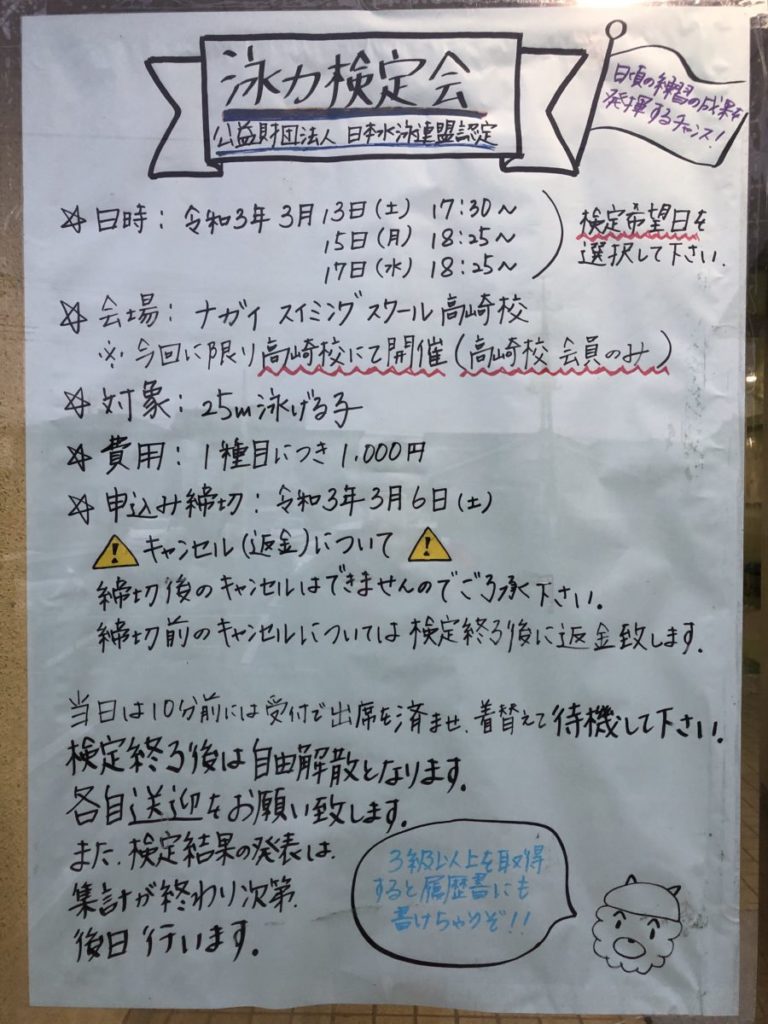 泳力検定会
公益財団法人 日本水泳連盟認定
日頃の練習の成果を
発揮するチャンス!
☆日時: 令和3年3月13日(土) 17:30〜
15日(月) 18:25〜
17日(水) 18:25〜
検定希望日を
選択して下さい.
☆会場: ナガイ スイミングスクール高崎校
※今回に限り高崎校にて開催(高崎校 会員のみ)
☆対象: 25m泳げる子
☆費用: 1種目につき1.000円
☆申込み締切: 令和3年3月6日(土)
キャンセル(返金)について
締切後のキャンセルはできませんのでご了承下さい.
締切前のキャンセルについては検定終了後に返金致します.
当日は10分前には受付で出席を済ませ、着替えて待機して下さい.
検定終了後は自由解散となります.
各自送迎をお願い致します.
また、検定結果の発表は、
集計が終わり次第、
後日行います.
3級以上を取得
すると履歴書にも
書けちゃうぞ!!